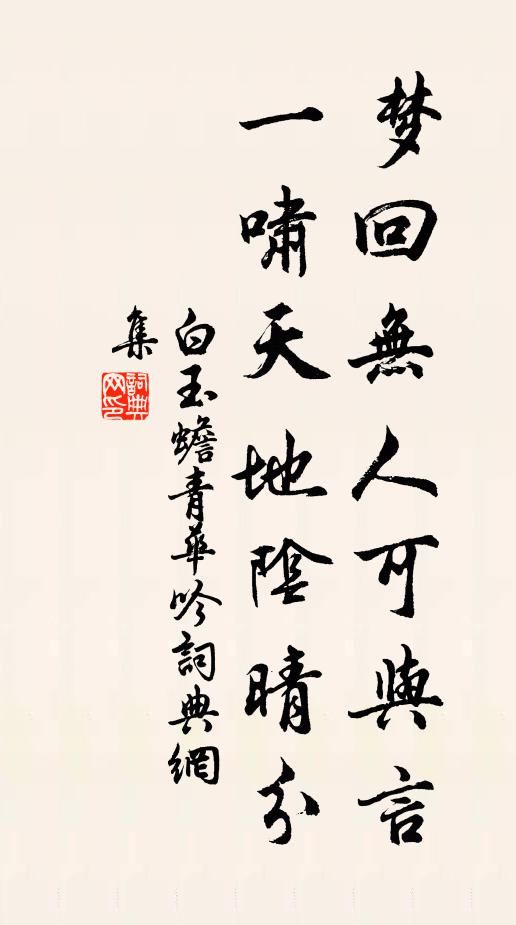 梦回無人可與言
一啸天地陰晴分
白玉蟾青華吟詞典網
集
詞典
网印